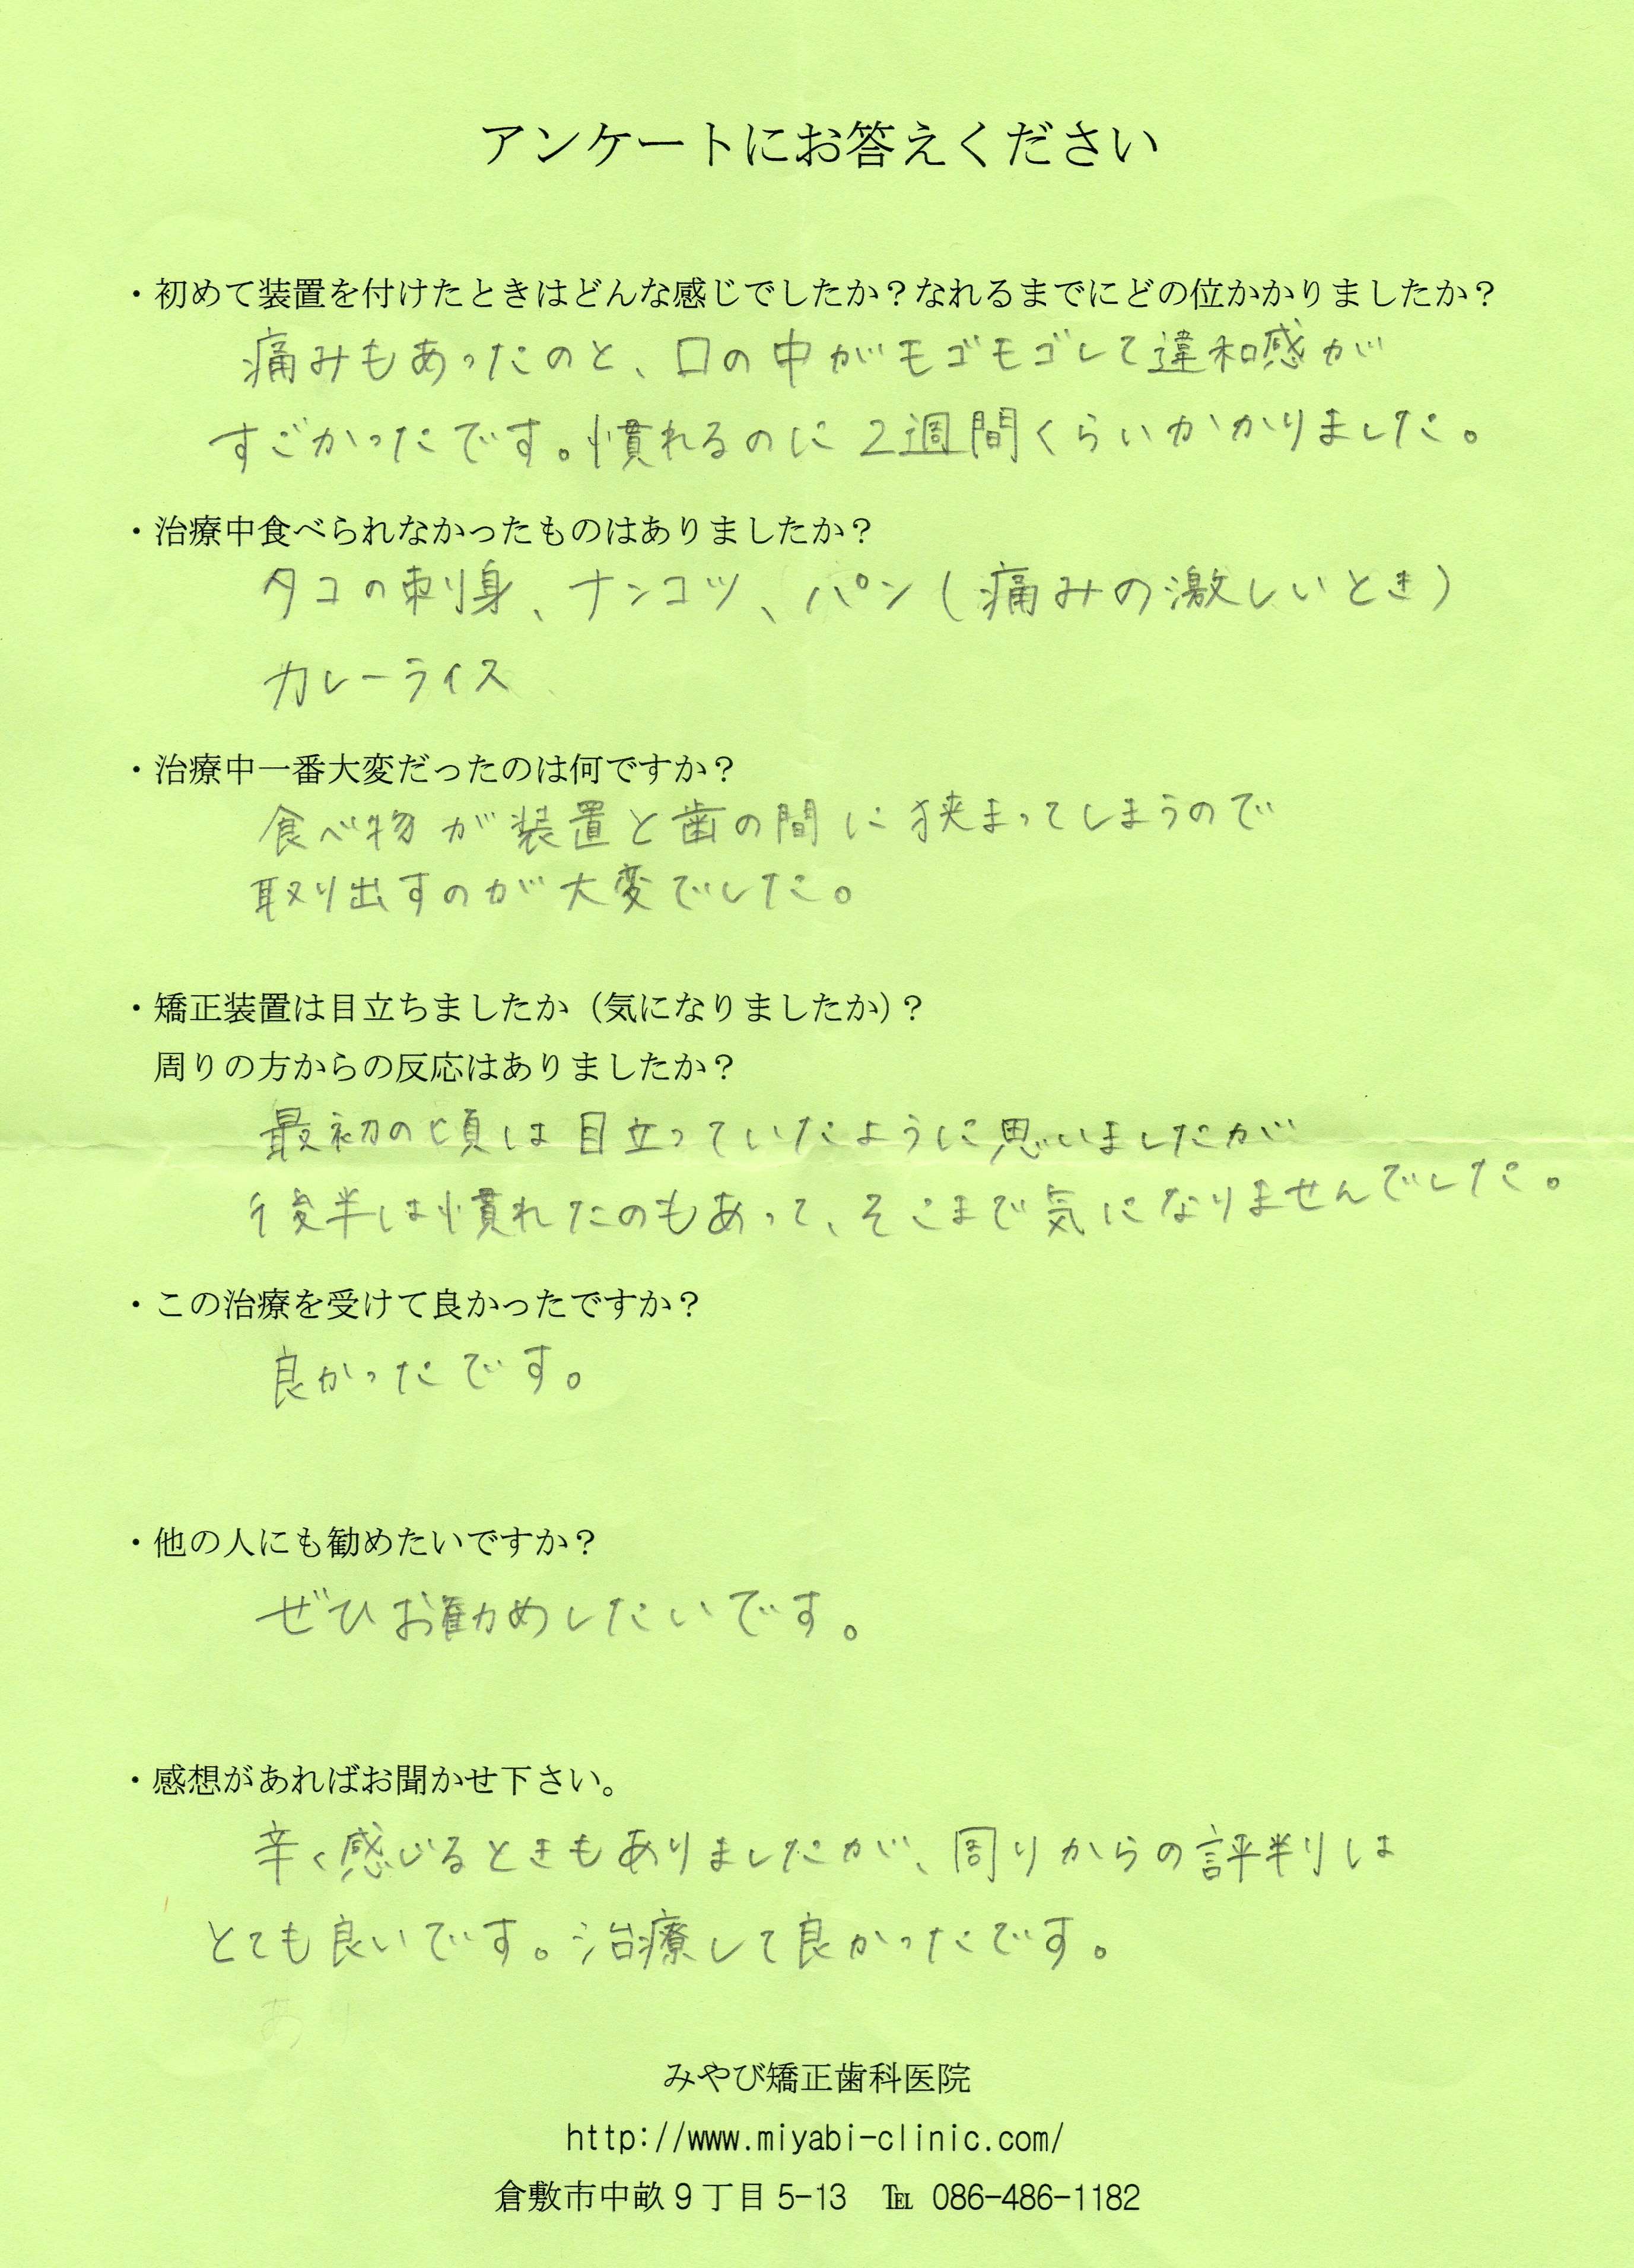 アンケートにお答えください
・初めて装置を付けたときはどんな感じでしたか？なれるまでにどの位かかりましたか？
痛みもあったのと、口の中がモゴモゴして違和感が
すごかったです。慣れるのに2週間くらいかかりました。
・治療中食べられなかったものはありましたか？
タコの刺身、ナンコツ、パン(痛みの激しいとき)
カレーライス
・治療中一番大変だったのは何ですか？
食べ物が装置と歯の間に狭まってしまうので
取り出すのが大変でした。
・矯正装置は目立ちましたか（気になりましたか）？
周りの方からの反応はありましたか？
最初の頃は目立っていたように思いましたが
後半は慣れたのもあって、そこまで気になりませんでした。
・この治療を受けて良かったですか？
良かったです。
・他の人にも勧めたいですか？
ぜひお勧めしたいです。
・感想があればお聞かせ下さい。
辛く感じるときもありましたが、周りからの評判は
とても良いです。治療して良かったです。
みやび矯正歯科医院
http://www.miyabi-clinic.com/
倉敷市中畝9丁目5-13　℡ 086-486-1182